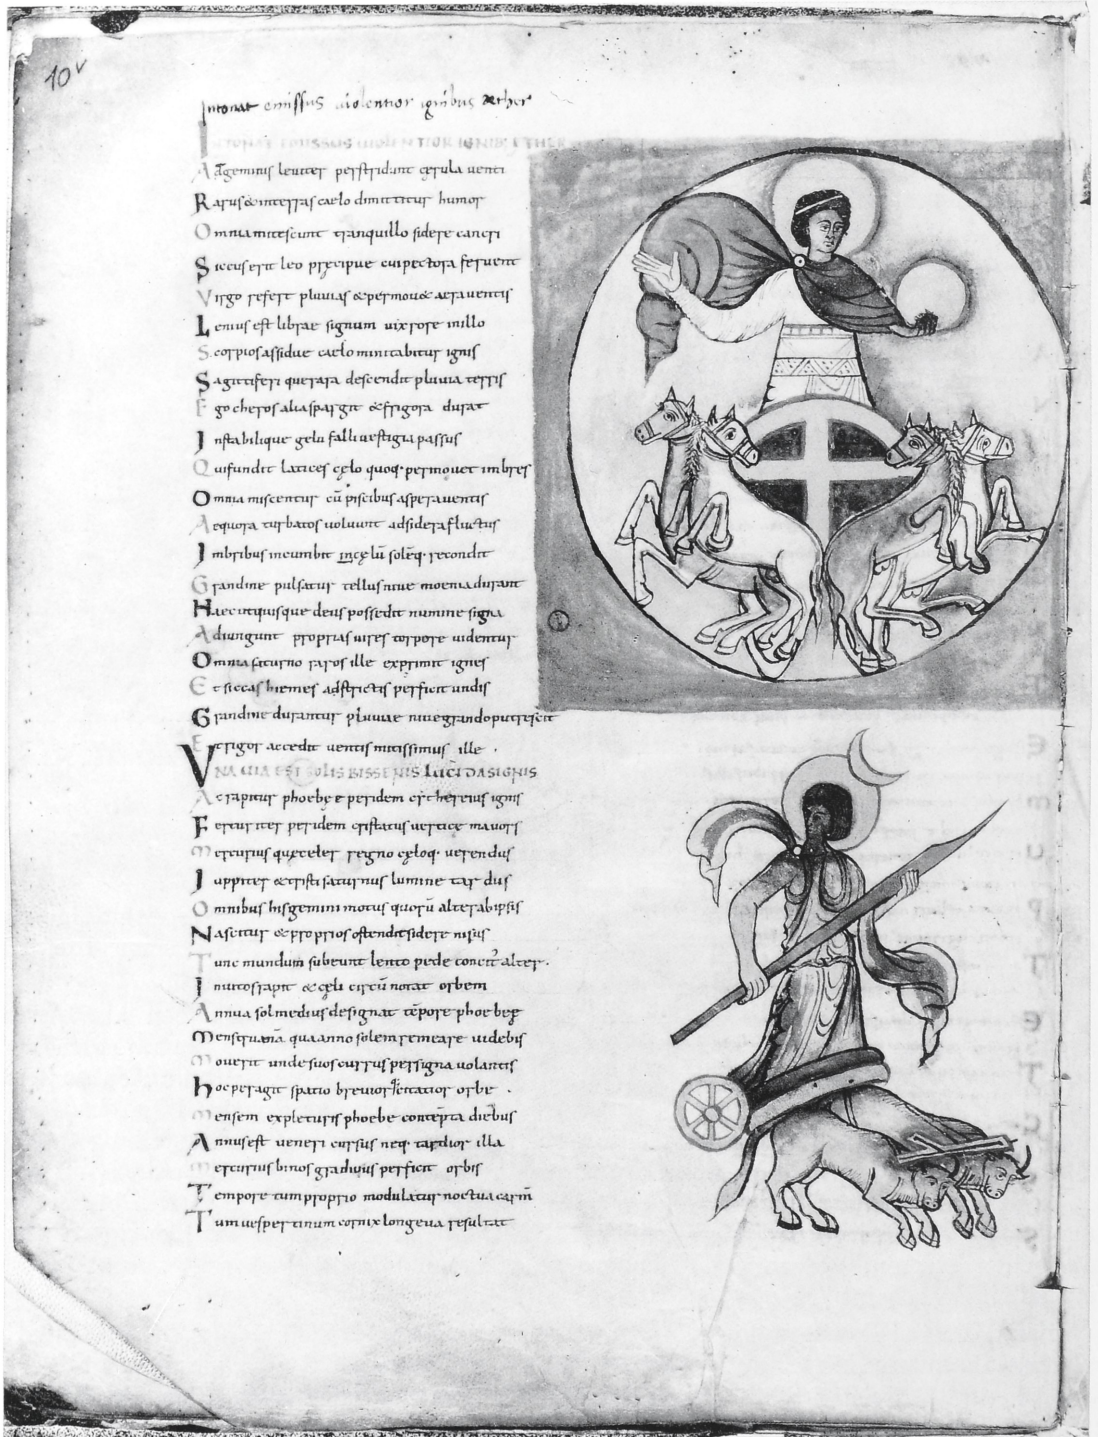 10v
Intonat emissus violentior ignibus æther
INTONAT EMISSUS VIOLENTIOR IGNIB; ETHER
Ageminis leviter perstridunt cerula venti
Rarus & interras caelo dimittitur humor
Omnia mitescunt tranquillo sidere cancri
Siccus erit leo precipue cui pectora fervent
Virgo refert pluvias & permov& aera ventis
Lenius est librae signum vix rore in illo
Scorpios assidue caelo minitabitur ignis
Sagittiferi descendit pluvia terris
Egocheros alia spargit & frigora durat
Instabilique gelu falli vestigia passus
Qui fundit latices celo quoq· permovet imbres
Omnia miscentur cū piscibus aspera ventis
Aequora turbatos volvunt ad sidera fluctus
Imbribus incumbit in celū solēq· recondit
Grandine pulsatur tellus nive moenia durant
Haec utquisque deus possedit numine signa
Adiungunt proprias vires torpore videntur
Omnia saturno raros ille exprimit ignes
Et siccas hiemes adstrictis perficit undis
Grandine durantur pluviae nive grando putrescit
Et frigor accedit ventis mitissimus ille ·
VNA VIA EST SOLIS BISSENIS LUCIDA SIGNIS
Ac rapitur phoebe peridem cythereius ignis
Fertur iter peridem cristatus vertice mavors
Mercurius que celer regno celoq· verendus
Iuppiter & tristi saturnus lumine tardus
Omnibus his gemini motus quorū alter ab ipsis
Nascitur & proprios ostendit sidere nisus
Tunc mundum subeunt lento pede alter·
Invitos rapit & celi circū notat orbem
Annua sol medius designat tēpore phoebe
Menstrua quaanno solem remeare videbis
Moverit unde suos currus per signa volantis
hoc peragit spatio brevior orbe ·
Mensem expleturis phoebe contēpta diebus
Annus est veneri cursus neq· tardior illa
Mercurius binos gradivus perficit orbis
Tempore tum proprio modulatur noctua carm̄
Tum vespertinum cornix longeva resultat